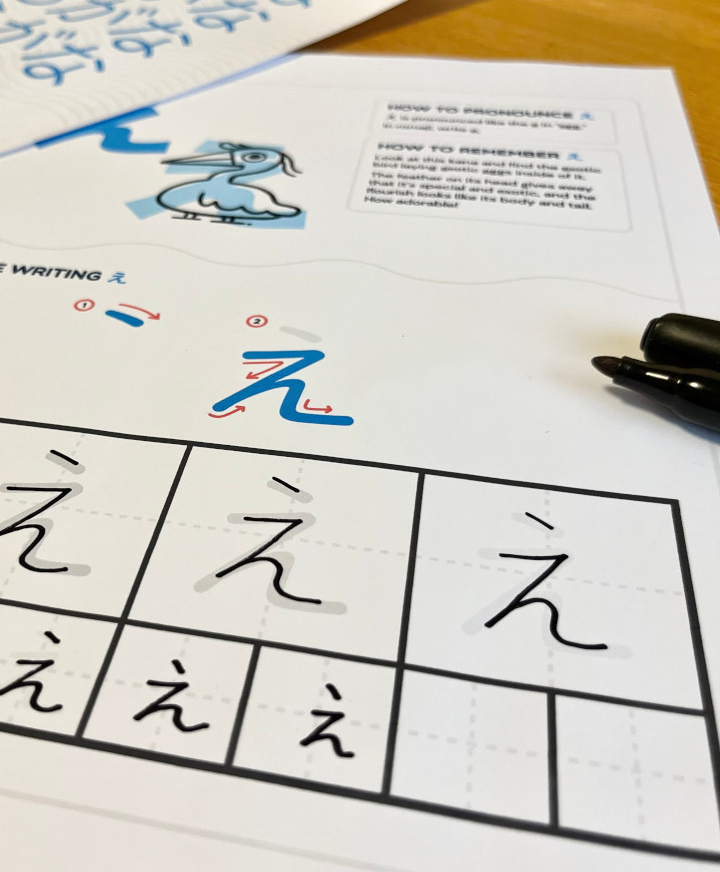 HOW TO PRONOUNCE え
え is pronounced like the e in "
HOW TO REMEMBER え
Look at this kana and find the exotic
bird laying exotic eggs inside of it.
The feather on its head gives away
that it's special and exotic, and the
flourish looks like its body and tail.
How adorable!
WRITING え
1
2
え
え え え
え え え